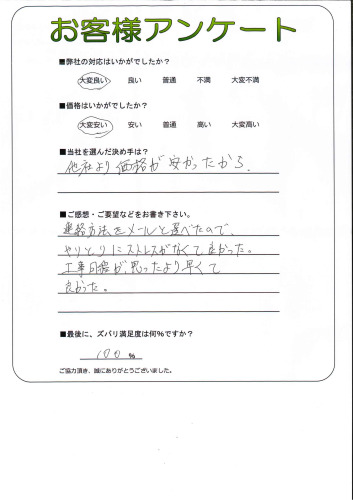 お客様アンケート
■弊社の対応はいかがでしたか？
大変良い 良い 普通 不満 大変不満
■価格はいかがでしたか？
大変安い 安い 普通 高い 大変高い
■当社を選んだ決め手は？
他社より価格が安かったから.
■ご感想・ご要望などをお書き下さい。
連絡方法をメールと選べたので、
やりとりにストレスがなくて良かった。
工事日程が、思ったより早くて
良かった。
■最後に、ズバリ満足度は何％ですか？
100 %
ご協力頂き、誠にありがとうございました。